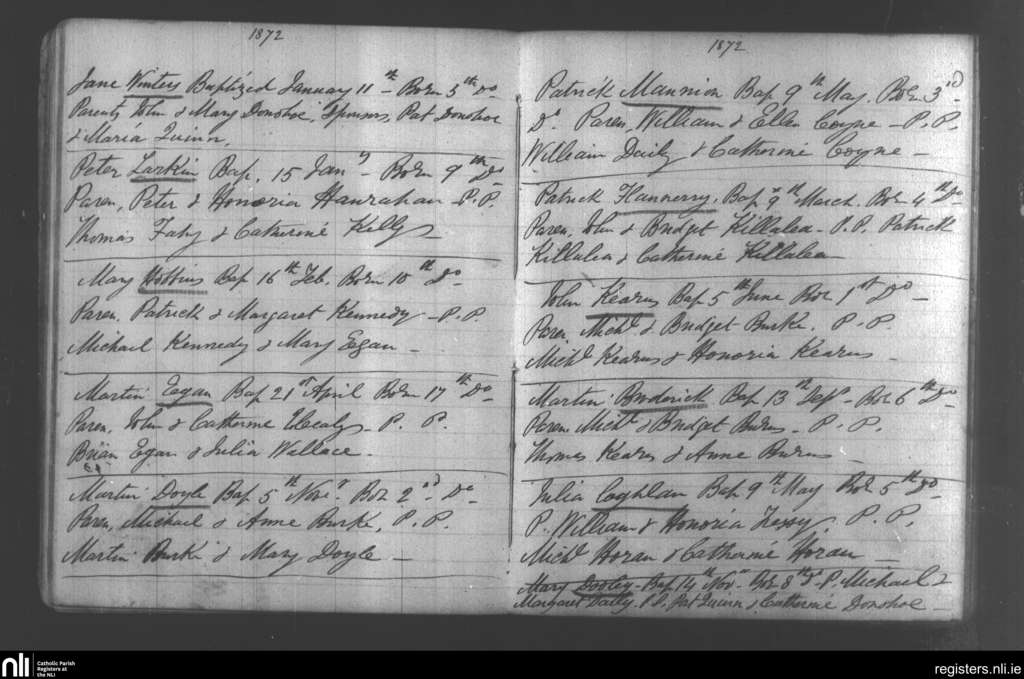 1872
Jane Winters Baptized January 11th Born 5th Do
Parents John & Mary Donohoe, Sponsors, Pat Donohoe
& Maria Quinn,
Peter Larkin Bap, 15 Jany Born 9th Do
Paren, Peter & Honoria Hanrahan P.P.
Thomas Fahy & Catherine Kelly
Mary Bap 16th Feb, Born 10th Do
Paren, Patrick & Margaret Kennedy P.P.
Michael Kennedy & Mary Egan
Martin Eagan Bap 21st April Born 17th Do
Paren, John & Catherine Healy P. P.
Brian Egan & Julia Wallace
Martin Doyle Bap 5th Novr Bor 2nd Do
Paren, Michael & Anne Burke, P. P.
Martin Burke & Mary Doyle
1872
Patrick Mannion Bap 9th May, Born 3rd
Do Paren, William & Ellen Coyne P.P.
William Daily & Catherine Coyne
Patrick Flannerry, Bap 9th March, Bor 4th Do
Paren, John & Bridget Killalea P.P. Patrick
Killalea & Catherine Killalea
John Kearns Bap 5th June Bor 1st Do
Paren, Michl & Bridget Burke, P. P.
Michl Kearns & Honoria Kearns
Martin Broderick Bap 13th Bor 6th Do
Paren Michl & Bridget Burns P. P.
Thomas Kearns & Anne Burns
Julia Coghlan Bap 9th May Bor 5th Do
P. William & Honoria P. P,
Michl Horan & Catherine Horan
Mary Dooley Bap 14th Novr Bor 8th Do P. Michael &
Margaret Dally P.P. Pat Quinn & Catherine Donohoe
nli Catholic Parish
Registers at
the NLI
registers.nli.ie